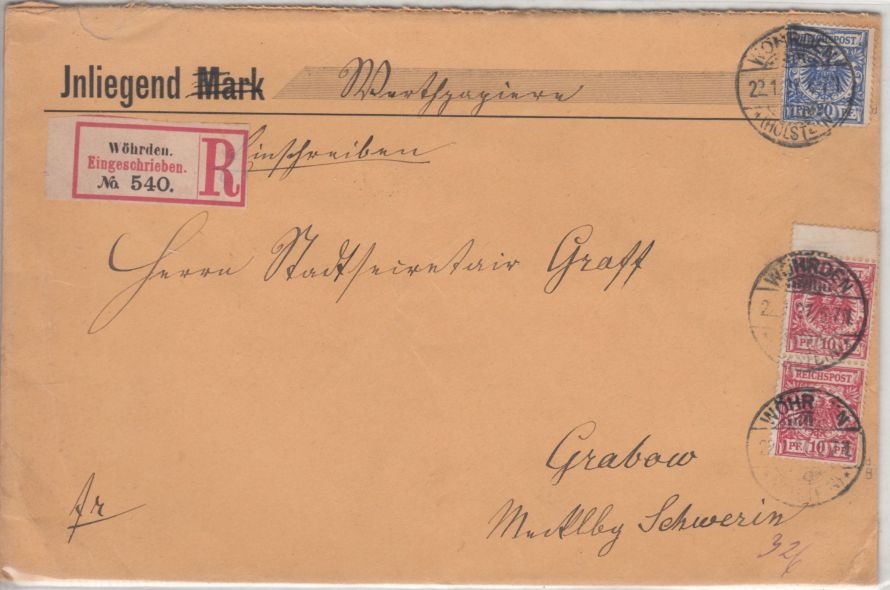 Jnliegend Mark Werthpapiere
Wöhrden.
Eingeschrieben.
No. 540.
R
Einschreiben
Herrn Stadtsecretair Graff
Grabow
Mecklbg Schwerin
fr
32
WÖHRDEN
22.1.
(HOLSTEIN)
REICHSPOST
20 PF.
WÖHRDEN
10 PF.
WÖHRDEN
REICHSPOST
10 PF.